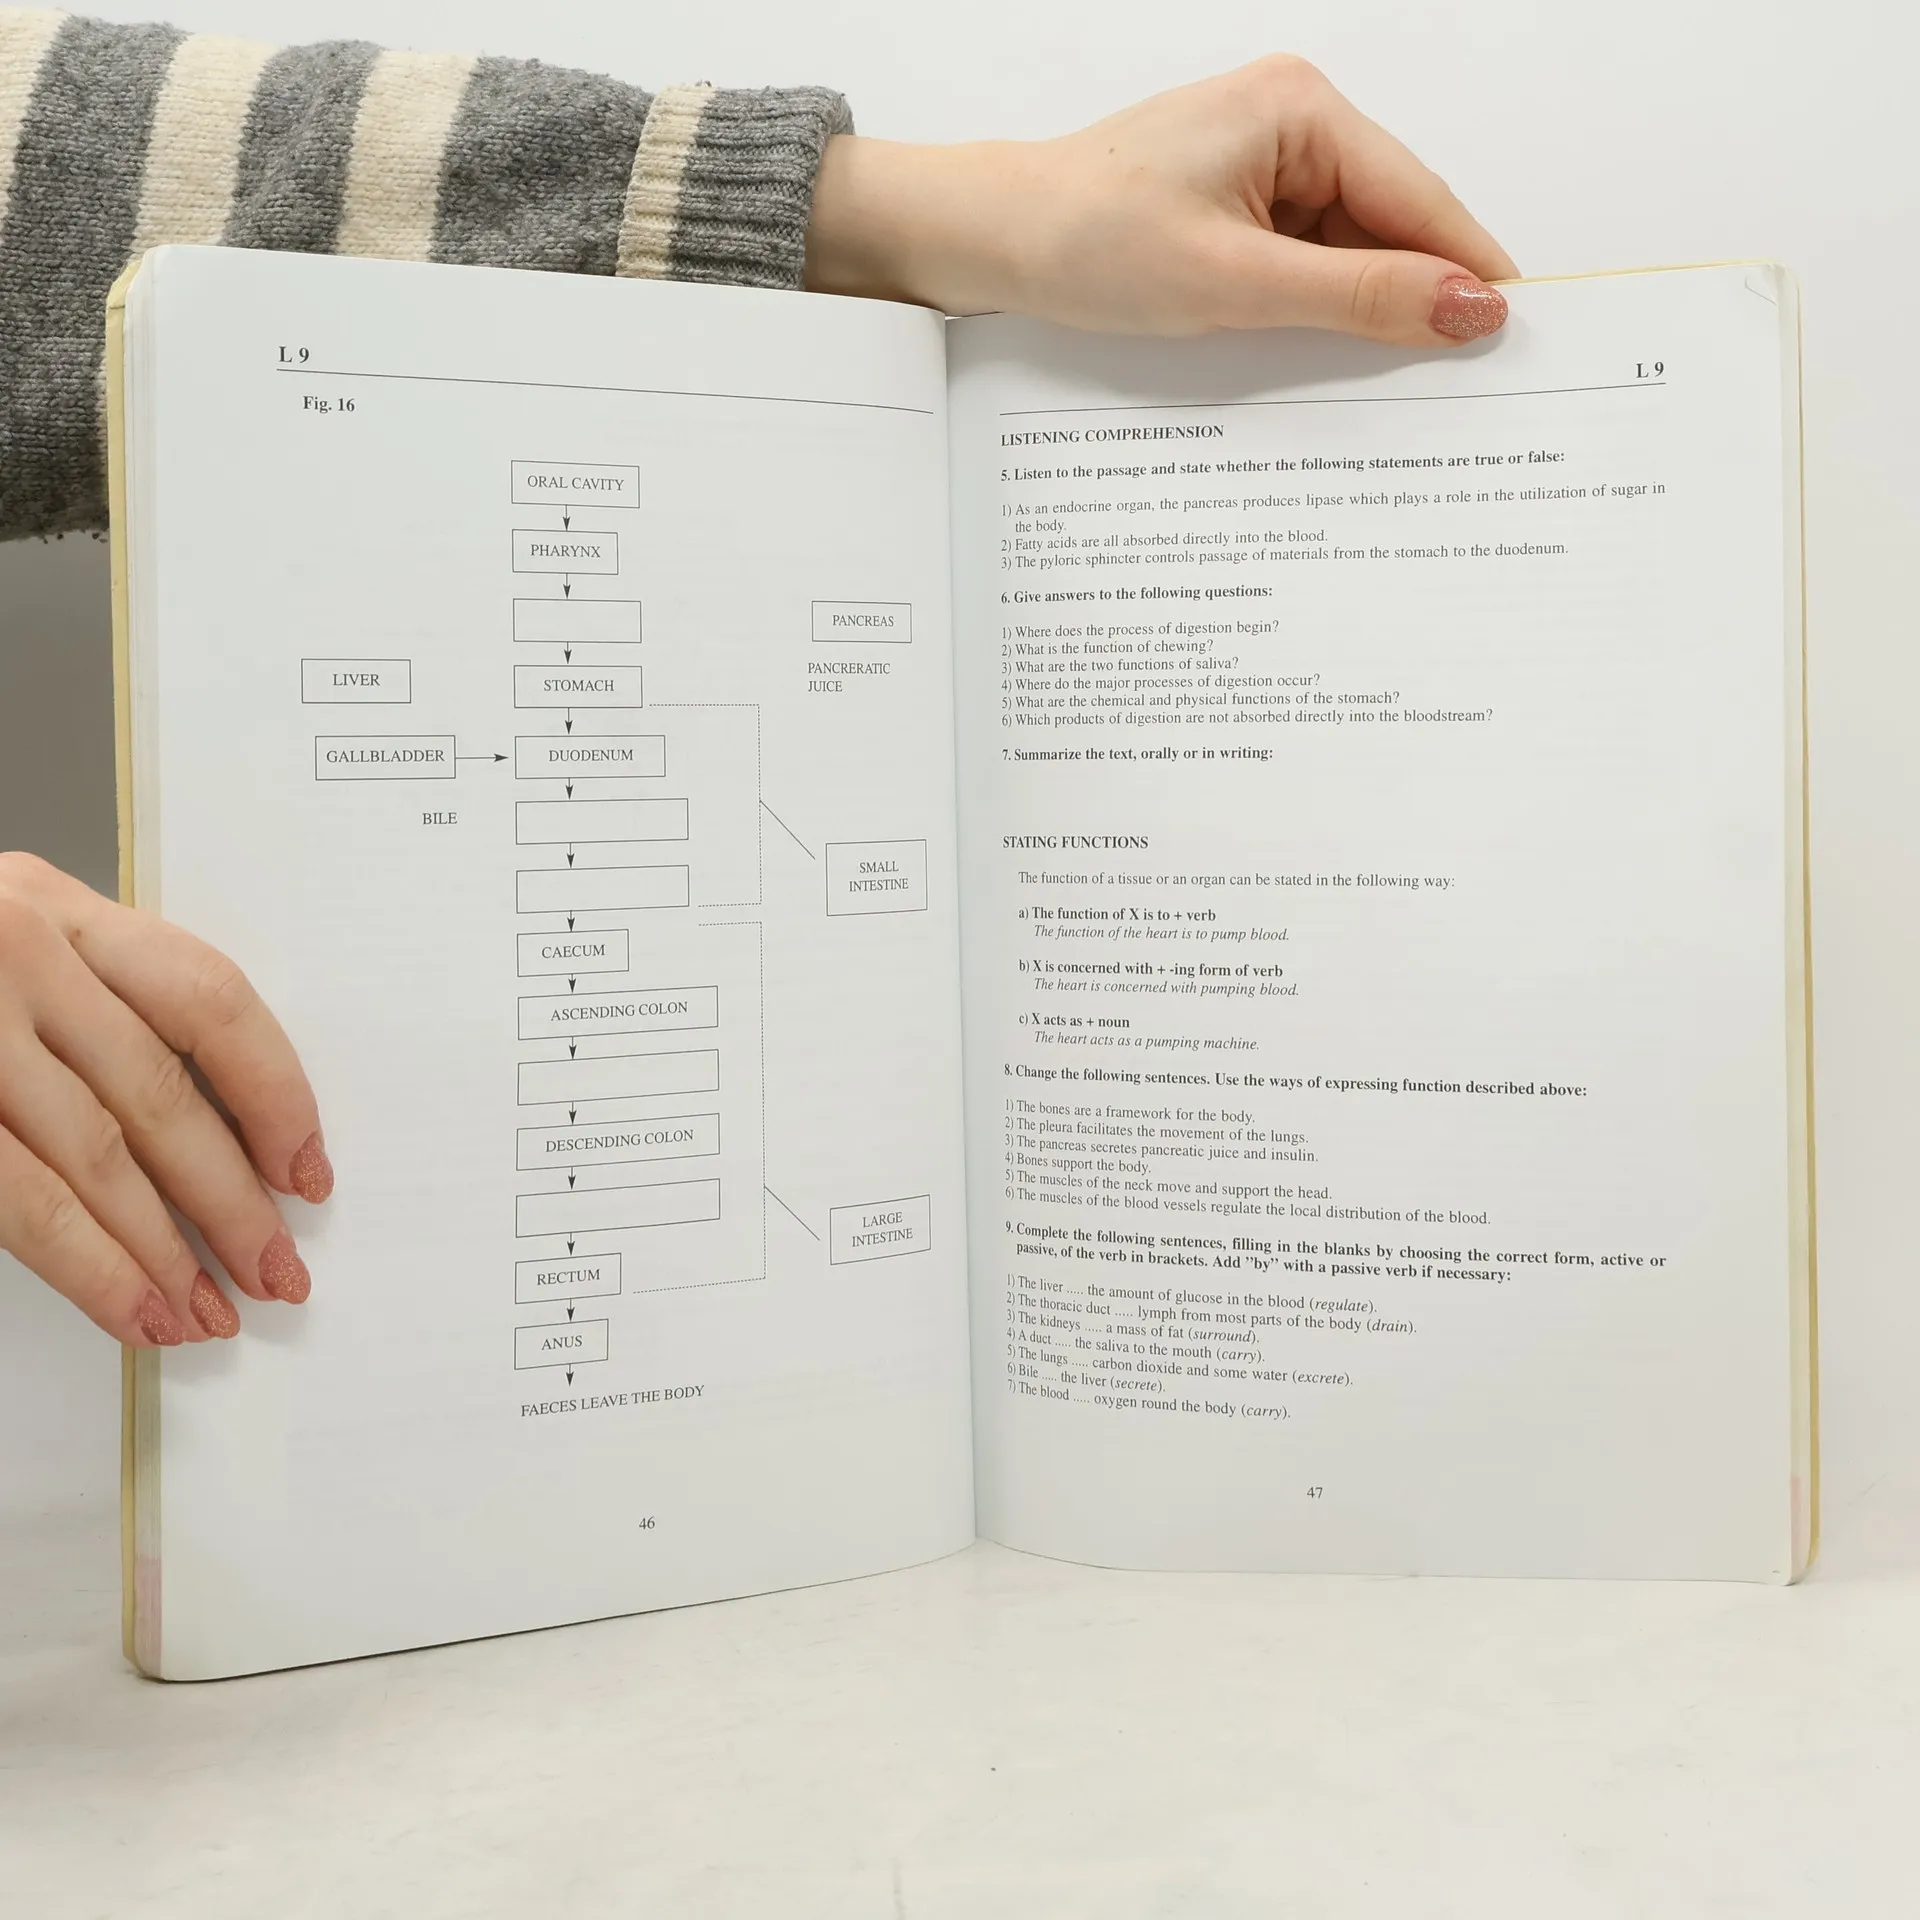 L 9
Fig. 16
ORAL CAVITY
PHARYNX
PANCREAS
PANCRERATIC
JUICE
LIVER
STOMACH
GALLBLADDER
DUODENUM
BILE
SMALL
INTESTINE
CAECUM
ASCENDING COLON
DESCENDING COLON
LARGE
INTESTINE
RECTUM
ANUS
FAECES LEAVE THE BODY
46
L 9
LISTENING COMPREHENSION
5. Listen to the passage and state whether the following statements are true or false:
1) As an endocrine organ, the pancreas produces lipase which plays a role in the utilization of sugar in
the body.
2) Fatty acids are all absorbed directly into the blood.
3) The pyloric sphincter controls passage of materials from the stomach to the duodenum.
6. Give answers to the following questions:
1) Where does the process of digestion begin?
2) What is the function of chewing?
3) What are the two functions of saliva?
4) Where do the major processes of digestion occur?
5) What are the chemical and physical functions of the stomach?
6) Which products of digestion are not absorbed directly into the bloodstream?
7. Summarize the text, orally or in writing:
STATING FUNCTIONS
The function of a tissue or an organ can be stated in the following way:
a) The function of X is to + verb
The function of the heart is to pump blood.
b) X is concerned with + -ing form of verb
The heart is concerned with pumping blood.
c) X acts as + noun
The heart acts as a pumping machine.
8. Change the following sentences. Use the ways of expressing function described above:
1) The bones are a framework for the body.
2) The pleura facilitates the movement of the lungs.
3) The pancreas secretes pancreatic juice and insulin.
4) Bones support the body.
5) The muscles of the neck move and support the head.
6) The muscles of the blood vessels regulate the local distribution of the blood.
9. Complete the following sentences, filling in the blanks by choosing the correct form, active or
passive, of the verb in brackets. Add ”by” with a passive verb if necessary:
1) The liver ..... the amount of glucose in the blood (regulate).
2) The thoracic duct ..... lymph from most parts of the body (drain).
3) The kidneys ..... a mass of fat (surround).
4) A duct ..... the saliva to the mouth (carry).
5) The lungs ..... carbon dioxide and some water (excrete).
6) Bile ..... the liver (secrete).
7) The blood ..... oxygen round the body (carry).
47